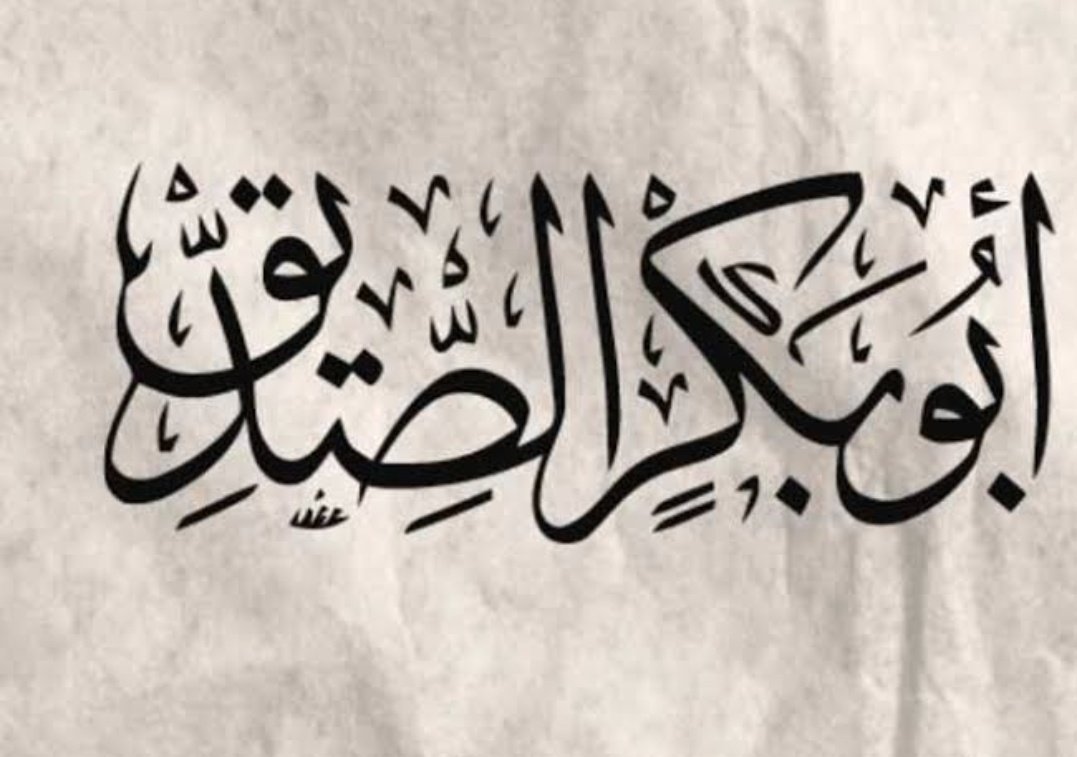 أَبُو بَكْرٍ الصِّدِّيقْ